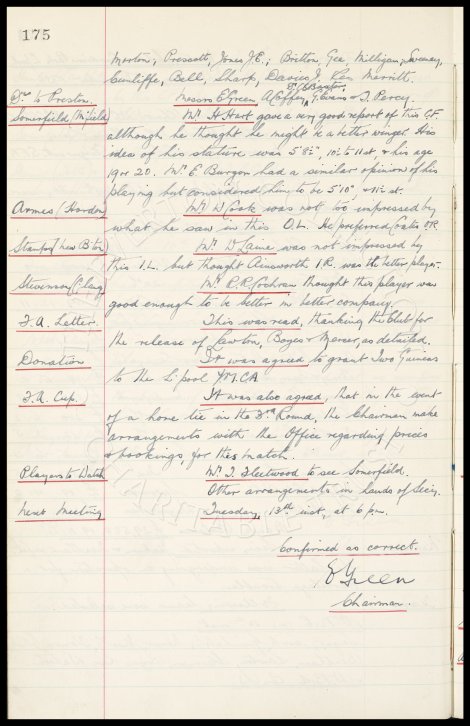 175
Morton, Prescott, Jones J.E., Britton, Gee, Milligan, Sweeney,
Cunliffe, Bell, Sharp, Davies J. Merritt.
Dr. to Preston.
Messrs E Green A Coffey, Dr C S Baxter, G. Evans & J. Percy
Somerfield (M'field
Mr H Hart gave a very good report of this C.F.
although he thought he might be a better winger. His
idea of his stature was 5'8½", 10½ to 11 st, & his age
19 or 20. Mr E Burgon had a similar opinion of his
playing but considered him to be 5'10" & 11½ st.
Armes (Horden
Mr W Cook was not too impressed by
what he saw in this O.L. He preferred Oates O.R.
Stamps (New B'ton)
Mr W Laine was not impressed by
this I.L. but thought Ainsworth I.R. was the better player.
Stevenson (C'lang
Mr R.R. Cochran thought this player was
good enough to be better in better company.
F.A. Letter.
This was read, thanking the Club for
the release of Lawton, Boyes & Mercer, as detailed.
Donation
It was agreed to grant Two Guineas
to the L'pool Y.M.C.A
F.A. Cup.
It was also agreed, that in the event
of a home tie in the 3rd Round, the Chairman make
arrangements with the Office regarding prices
& bookings, for this match.
Players to Watch
Mr T. Fleetwood to see Somerfield.
Other arrangements in hands of Secy.
Next Meeting
Tuesday, 13th inst, at 6 pm.
Confirmed as correct.
E Green
Chairman.